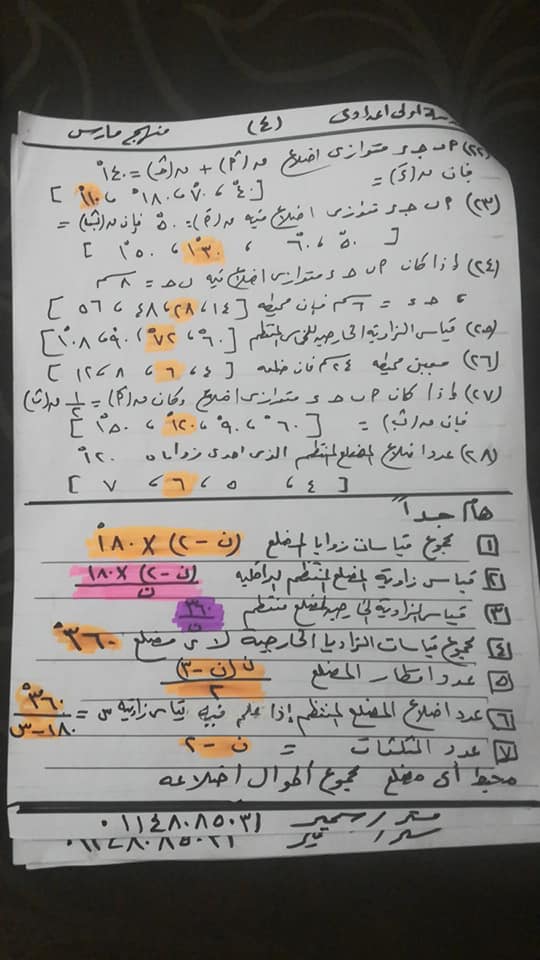 أولى اعدادى (٤) منهج مارس
(٢٢) م ب ج ء متوازى اضلاع ق(م) + ق(ج) = ١٤٠°
فإن ق(ء) = [ ٤٠° ، ٧٠° ، ١٨٠° ، ١١٠° ]
(٢٣) م ب ج ء متوازى اضلاع فيه ق(م) = ٥٠° فإن ق(ب) =
[ ٥٠° ، ٦٠° ، ١٣٠° ، ١٥٠° ]
(٢٤) إذا كان م ب ح ء متوازى اضلاع فيه ب ح = ٨ سم
، ح ء = ٦ سم فإن محيطه [ ١٤ ، ٢٨ ، ٤٨ ، ٥٦ ]
(٢٥) قياس الزاوية الخارجية للخماسى المنتظم [ ٦٠° ، ٧٢° ، ٩٠° ، ١٠٨° ]
(٢٦) معين محيطه ٢٤ سم فإن ضلعه [ ٤ ، ٦ ، ٨ ، ١٢ ]
(٢٧) إذا كان م ب ح ء متوازى اضلاع وكان ق(م) = ١/٢ ق(ب)
فإن ق(ب) = [ ٦٠° ، ٩٠° ، ١٢٠° ، ١٥٠° ]
(٢٨) عدد اضلاع المضلع المنتظم الذى احدى زواياه ١٢٠°
[ ٤ ، ٥ ، ٦ ، ٧ ]
هام جداً
١ مجموع قياسات زوايا المضلع (ن - ٢) × ١٨٠°
٢ قياس زاوية المضلع المنتظم الداخلية (ن - ٢) × ١٨٠ / ن
٣ قياس الزاوية الخارجية لمضلع منتظم ٣٦٠° / ن
٤ مجموع قياسات الزوايا الخارجية لأى مضلع ٣٦٠°
٥ عدد اقطار المضلع ن (ن - ٣) / ٢
٦ عدد اضلاع المضلع المنتظم إذا علم فيه قياس زاوية س = ٣٦٠° / ١٨٠ - س
٧ عدد المثلثات = ن - ٢
محيط أى مضلع مجموع أطوال أضلاعه
مستر / سمير ٠١١٤٨٠٨٥٠٣١